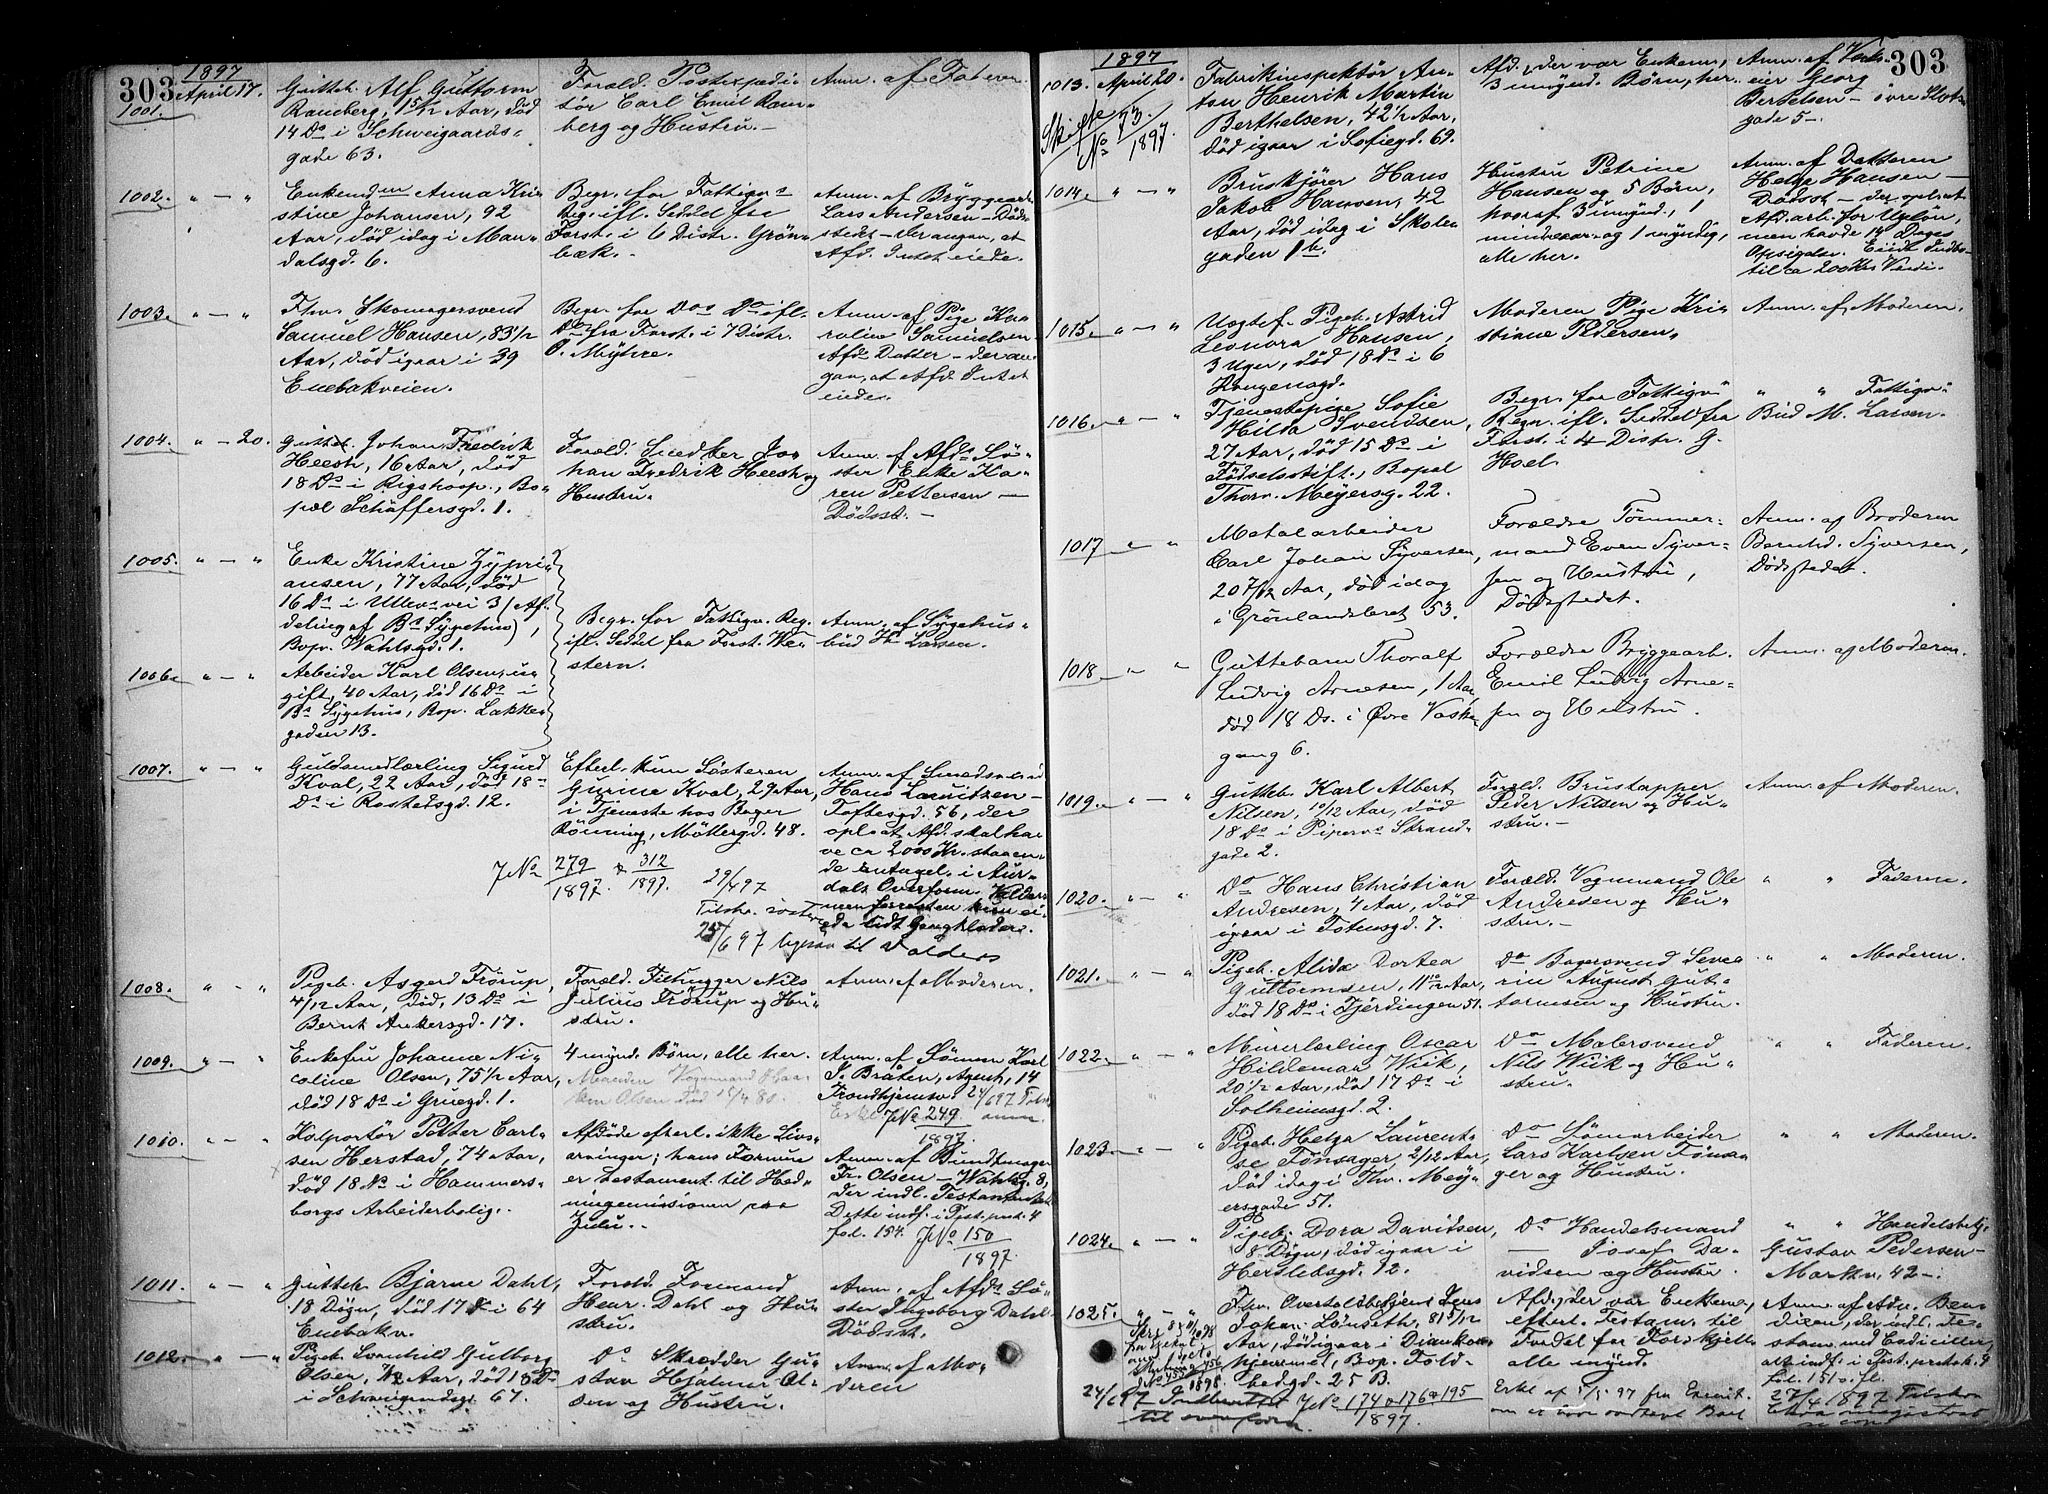 303
1897
April 17.
1001.
Gutteb. Alf Guttorm
Ramberg, 15/12 Aar, død
14 Ds i Schweigaards-
gade 63.
Foræld. Postexpedi-
tør Carl Emil Ram-
berg og Hustru.
Anm. af Faderen
1002.
" - "
Enkemdm Anna Kri-
stine Johansen, 92
Aar, død idag i Man-
dalsgd. 6.
Begr. for Fattigvs
Reg. ifl. Seddel fra
Forst. i 6 Distr. Grøn-
bæk.
Anm. af Bryggearb.
Lars Andersen - Døds-
stedet - der angav, at
Afd. Intet eiede.
1003.
" - "
Fhv. Skomagersvend
Samuel Hansen, 83 1/2
Aar, død igaar i 39
Enebakveien.
Begr. for Dos Do ifl.
Do fra Forst. i 7 Distr.
O. Myhre.
Anm. af Pige Ka-
roline Samuelsen
Afds Datter - der an-
gav, at Afd. Intet
eiede.
1004.
" - 20.
Gutteb. Johan Fredrik
Heesh, 16 Aar, død
18 Ds i Rigshosp., Bo-
pæl Schäffersgd. 1.
Foræld. Snedker Jo-
han Fredrik Heesh og
Hustru.
Anm. af Afds Sø-
ster Enke Ka-
ren Pettersen -
Dødsst. -
1005.
" - "
Enke Kristine Zypri-
ansen, 77 Aar, død
16 Ds i Ullevs vei 3 (Af-
deling af Bs Sygehus),
Bop. Wahlsgd. 1.
Begr. for Fattigv. Reg.
ifl. Seddel fra Forst. We-
stern.
Anm. af Sygehus-
bud H. Larsen.
1006.
" - "
Arbeider Karl Olsen, u-
gift, 40 Aar, død 16 Ds i
Bs Sygehus, Bop. Lakke-
gaden 13.
1007.
" - "
Guldsmedlærling Sigurd
Kval, 22 Aar, død 18
Ds i Rostedsgd. 12.
Efterl. kun Søsteren
Gunne Kval, 29 Aar,
i Tjeneste hos Bager
Rønning, Møllergd. 48.
JNo 279/1897 & 312/1897.
Anm. af Smedsvend
Hans Lauritzen -
Toftesgd. 56, der
oplyst Afd. skal ha-
ve ca 2000 Kr. staaen-
de antagel. i Aur-
dals Overform. Valders
men forresten kun ei-
ede lidt Gangklæder.
29/4 97
Tilskr. søster
25/6 97 til Valders
1008.
" - "
Pigeb. Asgerd Frørup,
4/12 Aar, død, 13 Ds i
Bernt Ankersgd. 17.
Foræld. Filhugger Nils
Julius Frørup og Hu-
stru.
Anm. af Moderen.
1009.
" - "
Enkefru Johanne Ni-
coline Olsen, 75 1/2 Aar,
død 18 Ds i Gruegd. 1.
4 mynd. Børn, alle her.
Manden Vognmand
Olsen død 15/4 80.
Anm. af Sønnen Karl
J. Bråten, Agent, 14
Trondhjemsv. 24/6 97
JNo 249/1897.
1010.
" - "
Kolportør Petter Carl-
sen Herstad, 74 Aar,
død 18 Ds i Hammers-
borgs Arbeiderbolig.
Afdøde efterl. ikke Livs-
arvinger; hans Formue
er testament. til Hed-
ningemissionen paa
Zulu. -
Anm. af Bundtmager
Fr. Olsen - Wahlsg. 8,
der indl. Testamentet
Dette indf. i Test. prot. 4
fol. 154. JNo 150/1897.
1011.
" - "
Gutteb. Bjarne Dahl,
18 Døgn, død 17 Ds i 64
Enebakv.
Foræld. Formand
Henr. Dahl og Hu-
stru.
Anm. af Afds Sø-
ster Ingeborg Dahl -
Dødsst.
1012.
" - "
Pigeb. Svanhild Gutborg
Olsen, Aar, død 18 Ds
i Schweigaardsgd. 67.
Do Skrædder Gu-
stav Hjalmar Ol-
sen og Hustru.
Anm. af Mo-
deren
303
1897
1013.
April 20.
Skifte No 73/1897.
Fabrikinspektør An-
ton Henrik Martin
Berthelsen, 42 1/2 Aar,
død igaar i Sofiegd. 69.
Afd., der var Enkem.,
3 umynd. Børn, her.
Anm. af Værks-
eier Georg
Bertelsen - øvre Slots-
gade 5 -
1014.
" - "
Bruskjører Hans
Jakob Hansen, 42
Aar, død idag i Skole-
gaden 1b.
Hustru Petrine
Hansen og 5 Børn,
hvoraf 3 umynd., 1
mindreaar. og 1 myndig,
alle her.
Anm. af Datteren
Helga Hansen -
Dødsst. - der oplyst
Afd. arb. for Ugeløn,
men havde 14 Dages
Opsigelse. Eiede Indbo
til ca 200 Krs Værdi.
1015.
" - "
Uægtef. Pigeb. Astrid
Leonora Hansen,
3 Uger, død 18 Ds i 6
Kongensgd.
Moderen Pige Kri-
stiane Pedersen.
Anm. af Moderen.
1016.
" - "
Tjenestepige Sofie
Hilda Svendsen,
27 Aar, død 15 Ds i
Fødselsstift., Bopæl
Thorv. Meyersg. 22.
Begr. for Fattigv-
Regn. ifl. Seddel fra
Forst. i 4 Distr. G.
Hoel.
" " Fattigv-
Bud M. Larsen.
1017
" "
Metalarbeider
Carl Johan Syversen,
20 7/12 Aar, død idag
i Grønlandsleret 53.
Forældre Tømmer-
mand Even Syver-
sen og Hustru,
Dødsstedet.
Anm. af Broderen
Bernhd. Syversen,
Dødsstedet.
1018
" "
Guttebarn Thoralf
Ludvig Arnesen, 1 Aar,
død 18 Ds. i Øvre Vaske-
gang 6.
Forældre Bryggearb.
Emil Ludvig Arne-
sen og Hustru.
Anm. af Moderen.
1019.
" - "
Gutteb. Karl Albert
Nilsen, 10/12 Aar, død
18 Ds i Pipervs Strand-
gade 2.
Foræld. Brustapper
Peder Nilsen og Hu-
stru. -
Anm. af Moderen.
1020.
" - "
Do Hans Christian
Andresen, 4 Aar, død
igaar i Totensgd. 7.
Foræld. Vognmand Ole
Andresen og Hu-
stru. -
" " Faderen.
1021.
" - "
Pigeb. Alida Dortea
Guttormsen, 11 10/12 Aar,
død 18 Ds i Fjerdingen 51.
Do Bagersvend Seve-
rin August Gut-
tormsen og Hustru.
" " Moderen.
1022.
" - "
Murerlærling Oscar
Hildemar Wiik,
20 1/2 Aar, død 17 Ds i
Solheimsgd. 2.
Do Malersvend
Nils Wiik og Hu-
stru.
" " Faderen.
1023.
" - "
Pigeb. Helga Laurent-
se Tønsager, 2/12 Aar,
død idag i Thv. Mey-
ersgade 51.
Do Sømarbeider
Lars Karlsen Tønsa-
ger og Hustru.
" " Moderen.
1024.
" - "
Pigeb. Dora Davidsen,
8 Døgn, død igaar i
Herslebsgd. 12.
Do Handelsmand
- Josef Da-
vidsen og Hustru.
" " Handelsbetj.
Gustav Pedersen -
Markv. 42 -.
1025.
" - "
Fhv. Overtoldbetjent Jens
Johan Lønseth, 81 5/12
Aar, død igaar i Diakon-
hjemmet, Bop. Told-
bodgd. 25 B.
Afd., der var Enkem.,
efterl. Testam. til
Fordel for Forskjell.
alle mynd.
Anm. af Adv. Ben-
dixen, der indl. Te-
stam. med Codiciller,
alt indf. i Test. protok. 9
fol. 151 o. fl.
1898.
24/6 97
til overform
JNo 174 & 176 & 195/1897.
27/4 1897 Tilskr.